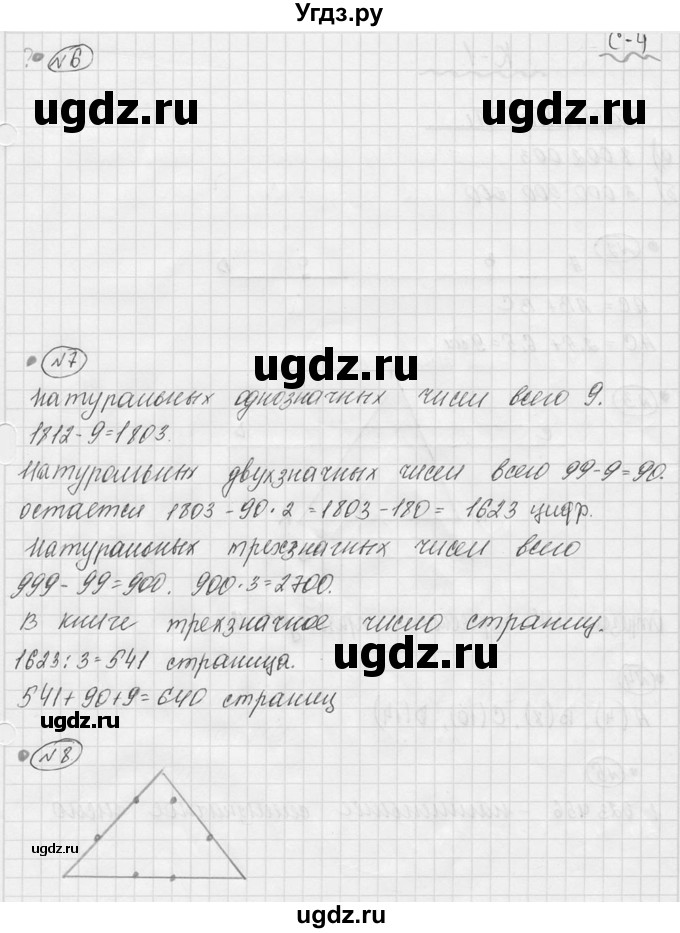 Угдз.ру
С-4
№6
ugdz.ru ugdz.ru
№7
ugdz.ru
Натуральных однозначных чисел всего 9.
1812-9=1803.
Натуральных двухзначных чисел всего 99-9=90.
остается 1803-90·2=1803-180= 1623 цифр.
Натуральных трехзначных чисел всего
999-99=900. 900·3=2700.
В книге трехзначное число страниц.
1623:3=541 страница.
ugdz.ru
541+90+9=640 страниц
ugdz.ru
№8
ugdz.ru ugdz.ru
ugdz.ru